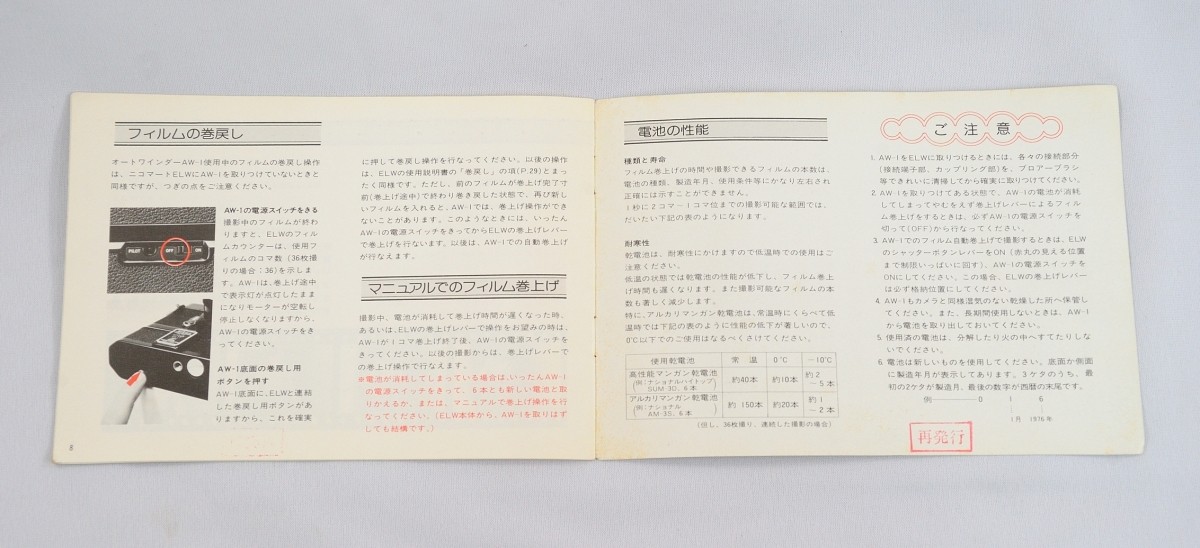 フィルムの巻戻し
オートワインダーAW-1使用中のフィルムの巻戻し操作
は、ニコマートELWにAW-1を取りつけていないときと
同様ですが、つぎの点をご注意ください。
PILOT OFF ON
AW-1の電源スイッチをきる
撮影中のフィルムが終わ
りますと、ELWのフィル
ムカウンターは、使用フ
ィルムのコマ数（36枚撮
りの場合：36）を示しま
す。AW-1は、巻上げ途中
で表示灯が点灯したまま
になりモーターが空転し
停止しなくなりますから、
AW-1の電源スイッチをき
ってください。
AW-1底面の巻戻し用
ボタンを押す
AW-1底面に、ELWと連結
した巻戻し用ボタンがあ
りますから、これを確実
8
に押して巻戻し操作を行なってください。以後の操作
は、ELWの使用説明書の「巻戻し」の項(P.29)とまっ
たく同様です。ただし、前のフィルムが巻上げ完了寸
前(巻上げ途中)で終わり巻き戻した状態で、再び新し
いフィルムを入れると、AW-1では、巻上げ操作ができ
ないことがあります。このようなときには、いったん
AW-1の電源スイッチをきってからELWの巻上げレバー
で巻上げを行ないます。以後は、AW-1での自動巻上げ
が行なえます。
マニュアルでのフィルム巻上げ
撮影中、電池が消耗して巻上げ時間が遅くなった時、
あるいは、ELWの巻上げレバーで操作をお望みの時は、
AW-1が1コマ巻上げ終了後、AW-1の電源スイッチを
きってください。以後の撮影からは、巻上げレバーで
の巻上げ操作で行なえます。
※電池が消耗してしまっている場合は、いったんAW-1
の電源スイッチをきって、6本とも新しい電池と取
りかえるか、または、マニュアルで巻上げ操作を行
なってください。(ELW本体から、AW-1を取りはず
しても結構です。)
電池の性能
種類と寿命
フィルム巻上げの時間や撮影できるフィルムの本数は、
電池の種類、製造年月、使用条件等にかなり左右され
正確には示すことができません。
1秒に2コマ〜1コマ位までの撮影が可能な範囲では、
だいたい下記の表のようになります。
耐寒性
乾電池は、耐寒性にかけますので低温時での使用はご
注意ください。
低温の状態では乾電池の性能が低下し、フィルム巻上
げ時間も遅くなります。また撮影可能なフィルムの本
数も著しく減少します。
特に、アルカリマンガン乾電池は、常温時にくらべて低
温時では下記の表のように性能の低下が著しいので、
0℃以下でのご使用はなるべくさけてください。
使用乾電池 常温 0℃ −10℃
高性能マンガン乾電池 (例：ナショナルハイトップ SUM-3D、6本) 約40本 約10本 約2〜5本
アルカリマンガン乾電池 (例：ナショナル AM-3S、6本) 約150本 約20本 約1〜2本
(但し、36枚撮り、連続した撮影の場合)
ご注意
1. AW-1をELWに取りつけるときには、各々の接続部分
(接続端子部、カップリング部)を、ブロアーブラシ
等できれいに清掃してから確実に取りつけてください。
2. AW-1を取りつけてある状態で、AW-1の電池が消耗
してしまってやむをえず巻上げレバーによるフィル
ム巻上げをするときは、必ずAW-1の電源スイッチを
切って(OFF)から行なってください。
3. AW-1でのフィルム自動巻上げで撮影するときは、ELW
のシャッターボタンレバーをON (赤丸の見える位置
まで制限いっぱいに回す)、AW-1の電源スイッチを
ONにしてください。この場合、ELWの巻上げレバー
は必ず格納位置にしてください。
4. AW-1もカメラと同様湿気のない乾燥した所へ保管し
てください。また、長期間使用しないときは、AW-1
から電池を取り出しておいてください。
5. 使用済の電池は、分解したり火の中へすてたりしな
いでください。
6. 電池は新しいものを使用してください。底面か側面
に製造年月が表示してあります。3ケタのうち、最
初の2ケタが製造月、最後の数字が西暦の末尾です。
例 0 1 6
1月 1976年
再発行